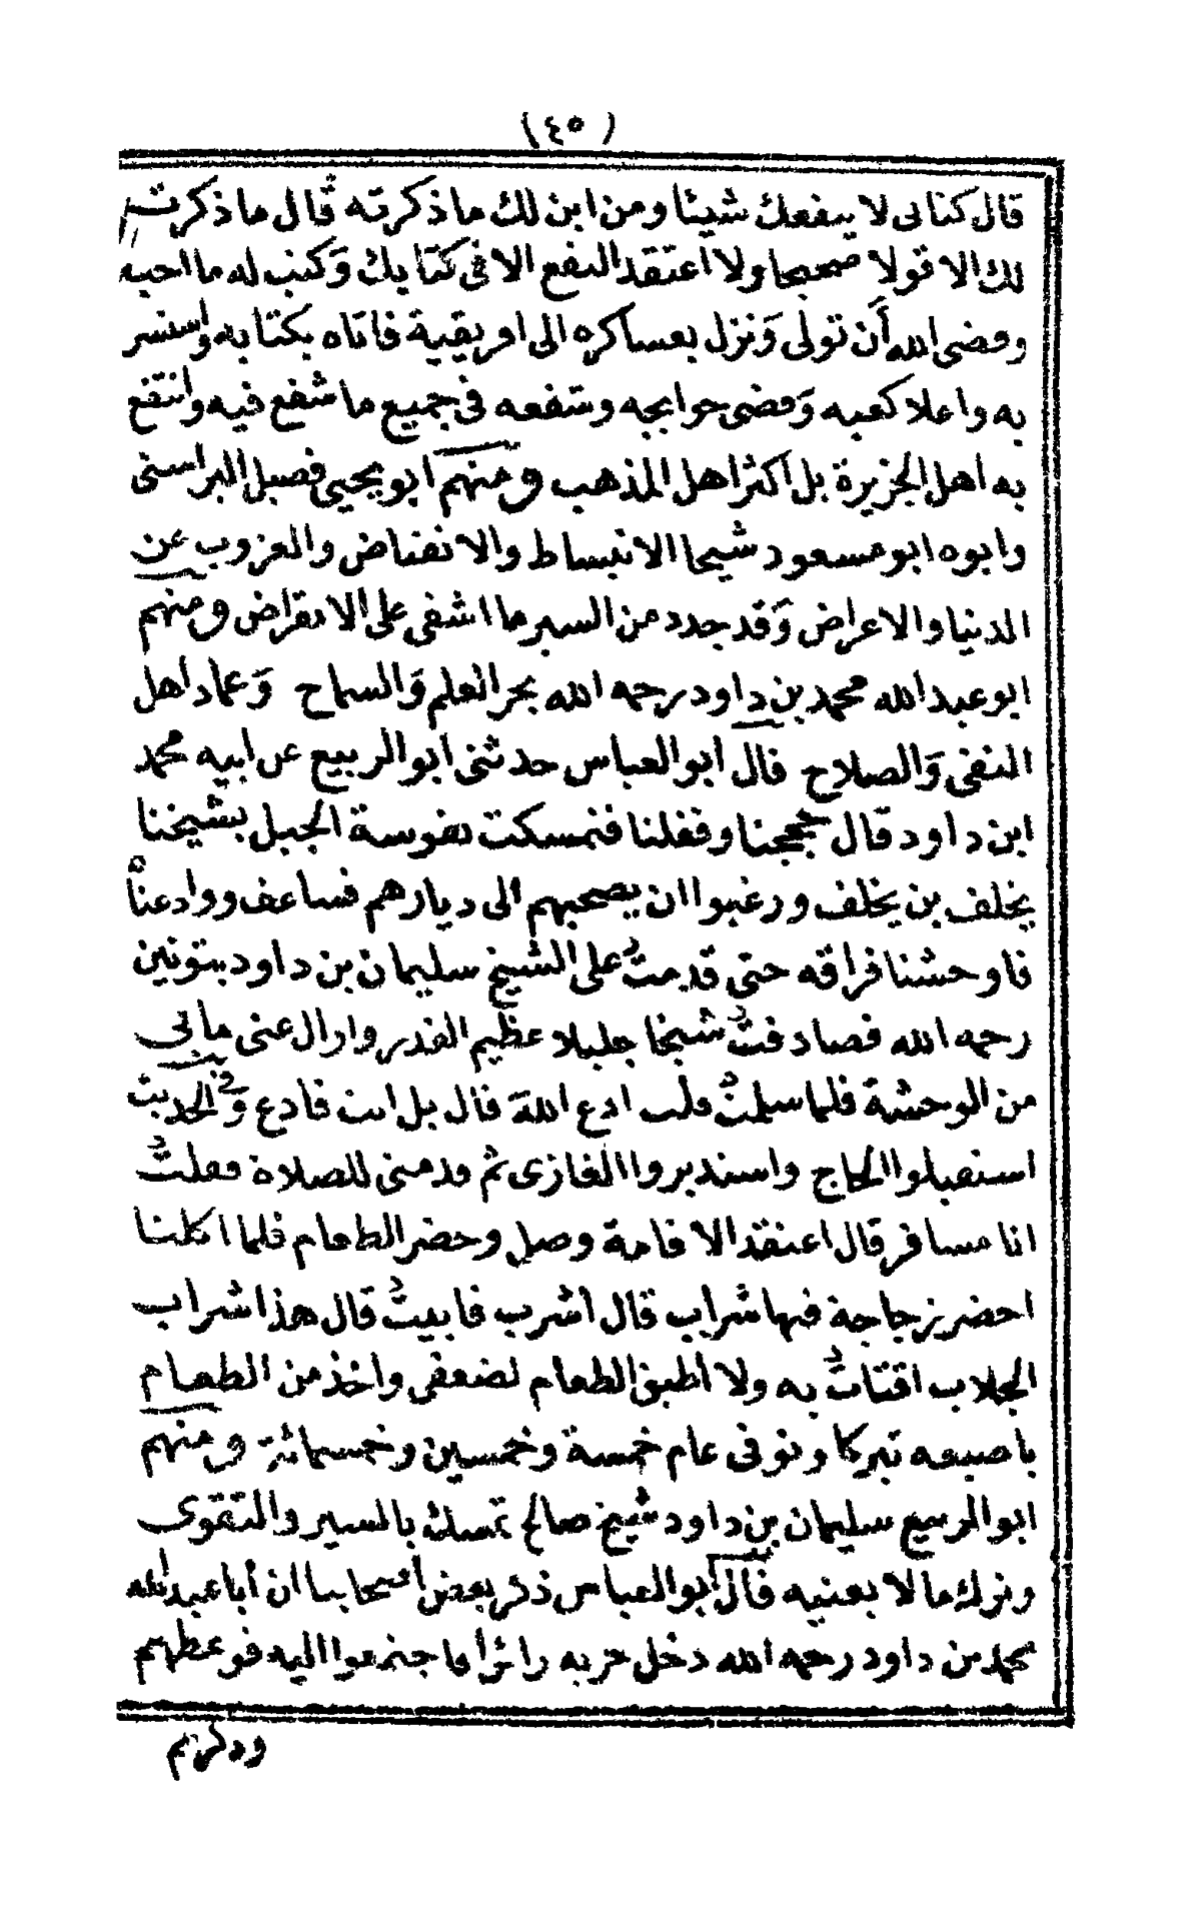 (٤٥)
قال كتابى لا ينفعك شيئا ومن اين لك ما ذكرته قال ما ذكرت
لك الا قولا صحيحا ولا اعتقد النفع الا فى كتابك وكتب له ما احبه
وقضى الله أن تولى ونزل بعساكره الى افريقية فاتاه بكتابه واستسر
به واعلا كعبه وقضى حوايجه وشفعه فى جميع ما شفع فيه وانتفع
به اهل الجزيرة بل اكثر اهل المذهب ومنهم ابو يحيى فصيل البراسنى
وابوه ابو مسعود شيحا الانبساط والانقباض والعزوب عن
الدنيا والاعراض وقد جدد من السير ما اشفى على الانقراض ومنهم
ابو عبد الله محمد بن داود رحمه الله بحر العلم والسماح وعماد اهل
التقى والصلاح قال أبو العباس حدثنى ابو الربيع عن ابيه محمد
ابن داود قال حججنا وقفلنا فتمسكت نفوسة الجبل بشيخنا
يخلف بن يخلف ورغبوا ان يصحبهم الى ديارهم فساعف ووادعناه
فاوحشنا فراقه حتى قدمت على الشيخ سليمان بن داود بتونين
رحمه الله فصادفت شيخا جليلا عظيم القدر وازال عنى مابى
من الوحشة فلما سلمت قلت ادع الله قال بل انت فادع وفى الحديث
استقبلوا الحاج واستدبروا الغازى ثم قدمنى للصلاة فقلت
انا مسافر قال اعتقد الاقامة وصل وحضر الطعام فلما اكلنا
احضر زجاجة فيها شراب قال اشرب فابيت قال هذا شراب
الجلاب اقتات به ولا اطيق الطعام لضعفى واخذ من الطعام
باصبعه تبركا وتوفى عام خمسة وخمسين وخمسمائة ومنهم
ابو الربيع سليمان بن داود شيخ صالح تمسك بالسير والتقوى
وترك ما لا يعنيه قال أبو العباس ذكر بعض أصحابنا ان أبا عبد الله
محمد بن داود رحمه الله دخل جربه زائرا فاجتمعوا اليه فوعظهم
وذكرهم